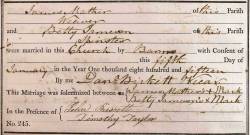 James Mather of this Parish
Weaver
and Betty Jameson of this Parish
Spinster
were married in this Church by Banns with Consent of
this fifth Day of
January in the Year One thousand eight hundred and fifteen
By me Vicar
This Marriage was solemnized between us James Mather's X Mark
Betty Jameson's X Mark
In the Presence of John
Timothy Taylor
No. 245.